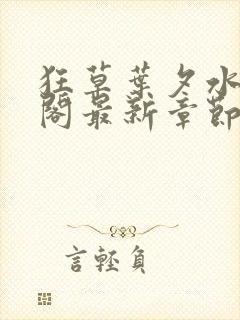 狂草葉夕水
閣最新章節
言輕負